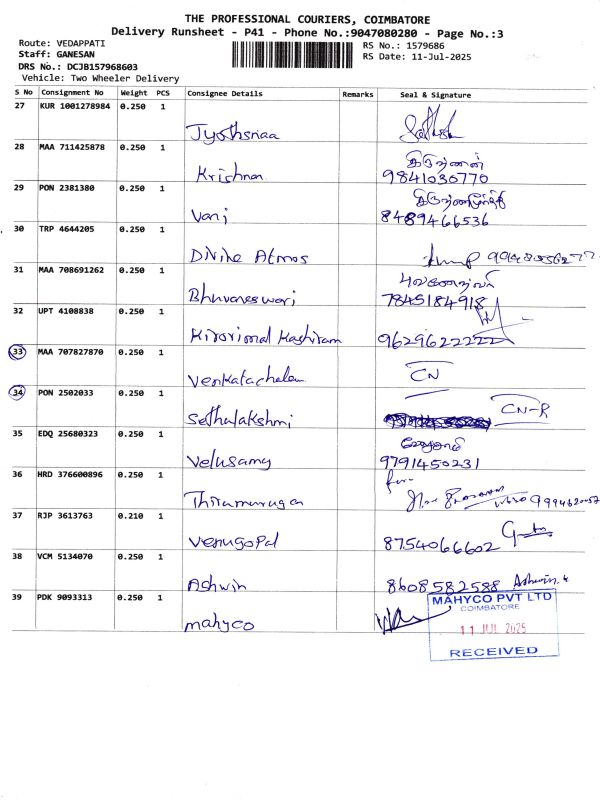 THE PROFESSIONAL COURIERS, COIMBATORE
Delivery Runsheet - P41 - Phone No.:9047080280 - Page No.:3
Route: VEDAPPATI
RS No.: 1579686
Staff: GANESAN
RS Date: 11-Jul-2025
DRS No.: DCJB157968603
Vehicle: Two Wheeler Delivery
S No Consignment No Weight PCS Consignee Details Remarks Seal & Signature
27 KUR 1001278984 0.250 1
Jyothsnaa
28 MAA 711425878 0.250 1
Krishnan 9841030770
29 PON 2381380 0.250 1
Vani 8489466536
30 TRP 4644205 0.250 1
Divine Atmos
31 MAA 708691262 0.250 1
Bhuvaneswari 7845184918
32 UPT 4108838 0.250 1
Kirorimal Kashiram 9629622222
33 MAA 707827870 0.250 1
CN
Venkatachalam
34 PON 2502033 0.250 1
CN-R
Sethulakshmi
35 EDQ 25680323 0.250 1
Velusamy 9791450231
36 HRD 376600896 0.250 1
for-
Thirumurugan
37 RJP 3613763 0.210 1
Venugopal 8754066602
38 VCM 5134070 0.250 1
Ashwin 8608582588 Ashwin.k
39 PDK 9093313 0.250 1
mahyco
MAHYCO PVT LTD
COIMBATORE
11 JUL 2025
RECEIVED